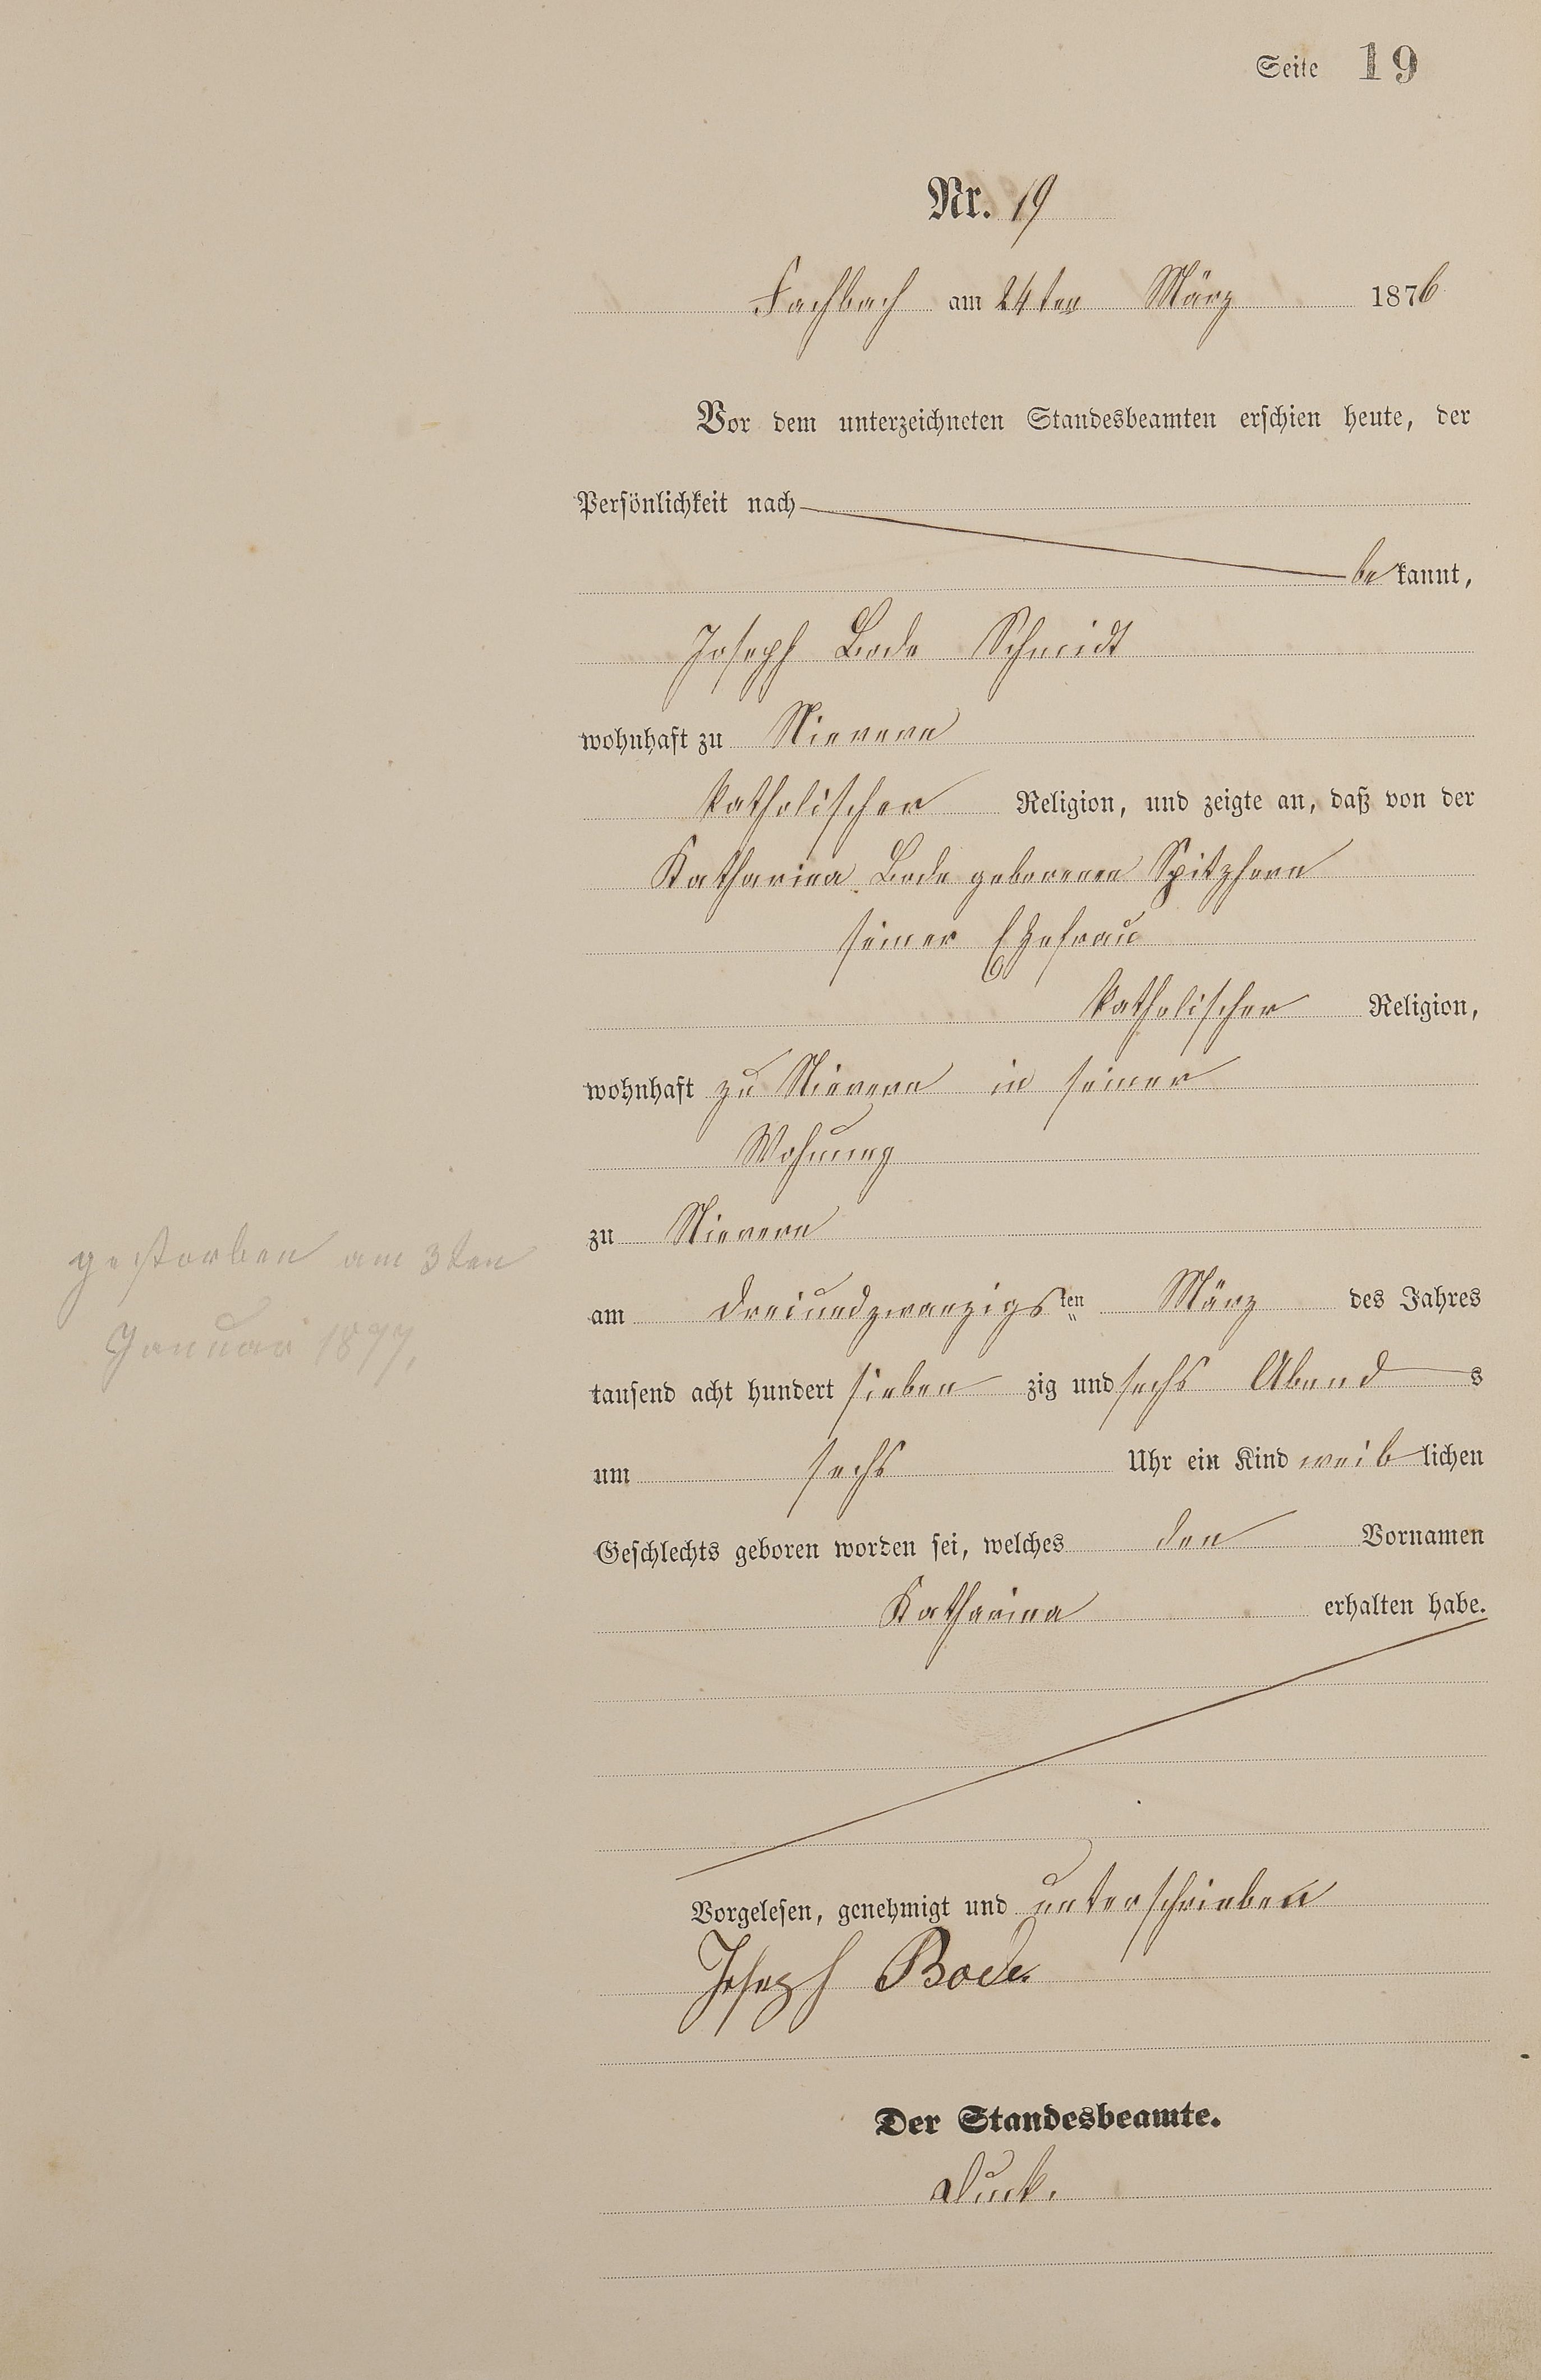 Seite 19
Nr. 19
Fachbach am 24ten März 1876
Vor dem unterzeichneten Standesbeamten erschien heute, der
Persönlichkeit nach
be kannt,
Joseph Bode Schmidt
wohnhaft zu Nievern
katholischer Religion, und zeigte an, daß von der
Katharina Bode geborenen Spitzhorn
seiner Ehefrau
katholischer Religion,
wohnhaft zu Nievern in seiner
Wohnung
zu Nievern
gestorben am 3ten
Januar 1877,
am dreiundzwanzigsten März des Jahres
tausend acht hundert sieben zig und sechs Abend s
um sechs Uhr ein Kind weib lichen
Geschlechts geboren worden sei, welches den Vornamen
Katharina erhalten habe.
Vorgelesen, genehmigt und unterschrieben
Joseph Bode
Der Standesbeamte.